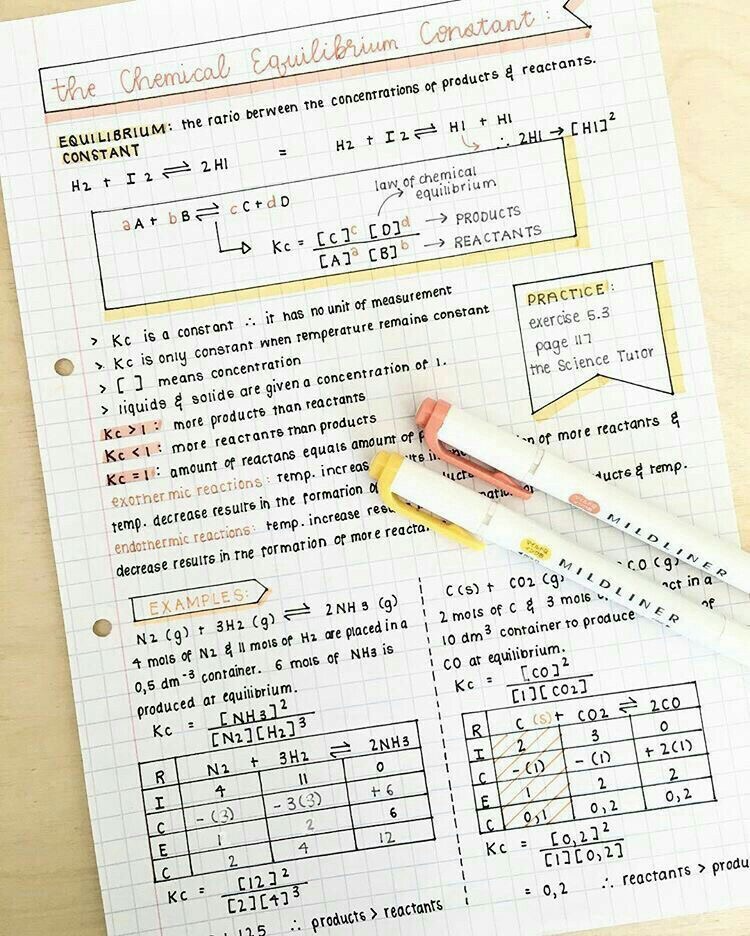 the Chemical Equilibrium Constant:
EQUILIBRIUM: the ratio between the concentrations of products & reactants.
CONSTANT
H2 + I2 ⇌ 2HI = H2 + I2 ⇌ HI + HI
∴ 2HI → [HI]²
aA + bB ⇌ cC + dD
law of chemical
equilibrium
Kc = [C]ᶜ [D]ᵈ → PRODUCTS
[A]ᵃ [B]ᵇ → REACTANTS
> Kc is a constant ∴ it has no unit of measurement
> Kc is only constant when temperature remains constant
> [ ] means concentration
> liquids & solids are given a concentration of 1.
Kc > 1: more products than reactants
Kc < 1: more reactants than products
Kc = 1: amount of reactans equals amount of
exothermic reactions: temp. increas in of more reactants &
temp. decrease results in the formation
endothermic reactions: temp. increase & temp.
decrease results in the formation of more
PRACTICE:
exercise 5.3
page 117
the Science Tutor
MILDLINER
MILDLINER
EXAMPLES:
N2 (g) + 3H2 (g) ⇌ 2NH3 (g)
4 mols of N2 & 11 mols of H2 are placed in a
0,5 dm⁻³ container. 6 mols of NH3 is
produced at equilibrium.
Kc = [NH3]²
[N2][H2]³
R N2 + 3H2 ⇌ 2NH3
I 4 11 0
C -(3) -3(3) +6
E 1 2 6
C 2 4 12
Kc = [12]²
[2][4]³
125 ∴ products > reactants
C(s) + CO2 (g) CO (g)
2 mols of C & 3 mols in a
10 dm³ container to produce of
CO at equilibrium.
Kc = [CO]²
[1][CO2]
R C (s) + CO2 ⇌ 2CO
I 2 3 0
C -(1) -(1) +2(1)
E 1 2 2
C 0,1 0,2 0,2
Kc = [0,2]²
[1][0,2]
= 0,2 ∴ reactants >